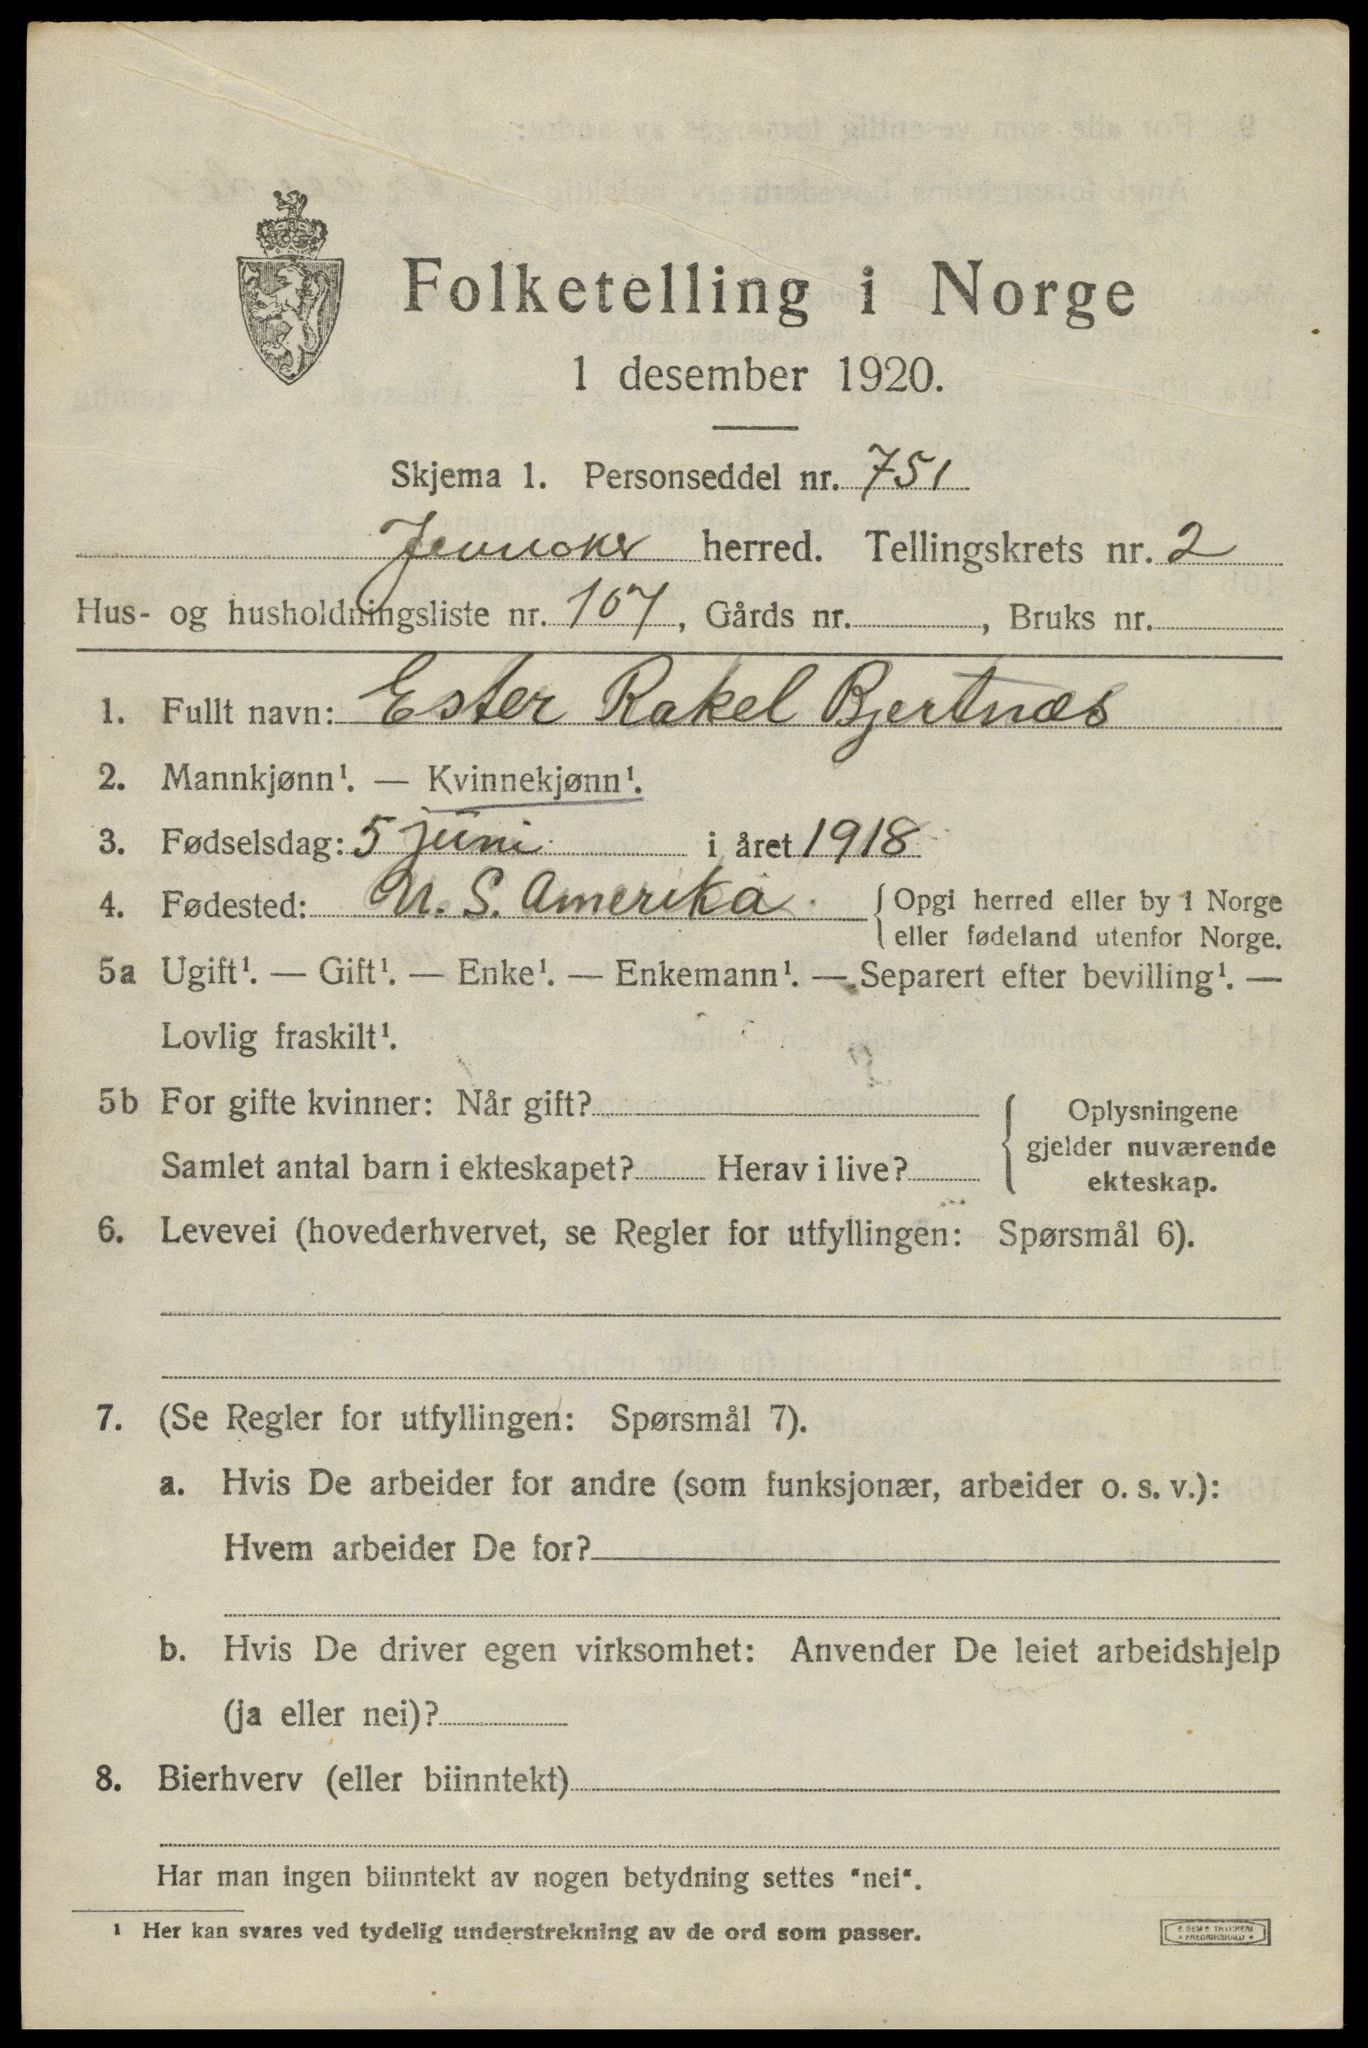 Folketelling i Norge
1 desember 1920.
Skjema 1. Personseddel nr. 751
Jevnaker herred. Tellingskrets nr. 2
Hus- og husholdningsliste nr. 107, Gårds nr. , Bruks nr.
1. Fullt navn: Ester Rakel Bjertnæs
2. Mannkjønn¹. — Kvinnekjønn¹.
3. Fødselsdag: 5 juni i året 1918
4. Fødested: U. S. Amerika {Opgi herred eller by i Norge
eller fødeland utenfor Norge.
5a Ugift¹. — Gift¹. — Enke¹. — Enkemann¹. — Separert efter bevilling¹. —
Lovlig fraskilt¹.
5b For gifte kvinner: Når gift?
Samlet antal barn i ekteskapet? Herav i live?
{Oplysningene
gjelder nuværende
ekteskap.
6. Levevei (hovederhvervet, se Regler for utfyllingen: Spørsmål 6).
7. (Se Regler for utfyllingen: Spørsmål 7).
a. Hvis De arbeider for andre (som funksjonær, arbeider o. s. v.):
Hvem arbeider De for?
b. Hvis De driver egen virksomhet: Anvender De leiet arbeidshjelp
(ja eller nei)?
8. Bierhverv (eller biinntekt)
Har man ingen biinntekt av nogen betydning settes "nei".
¹ Her kan svares ved tydelig understrekning av de ord som passer.